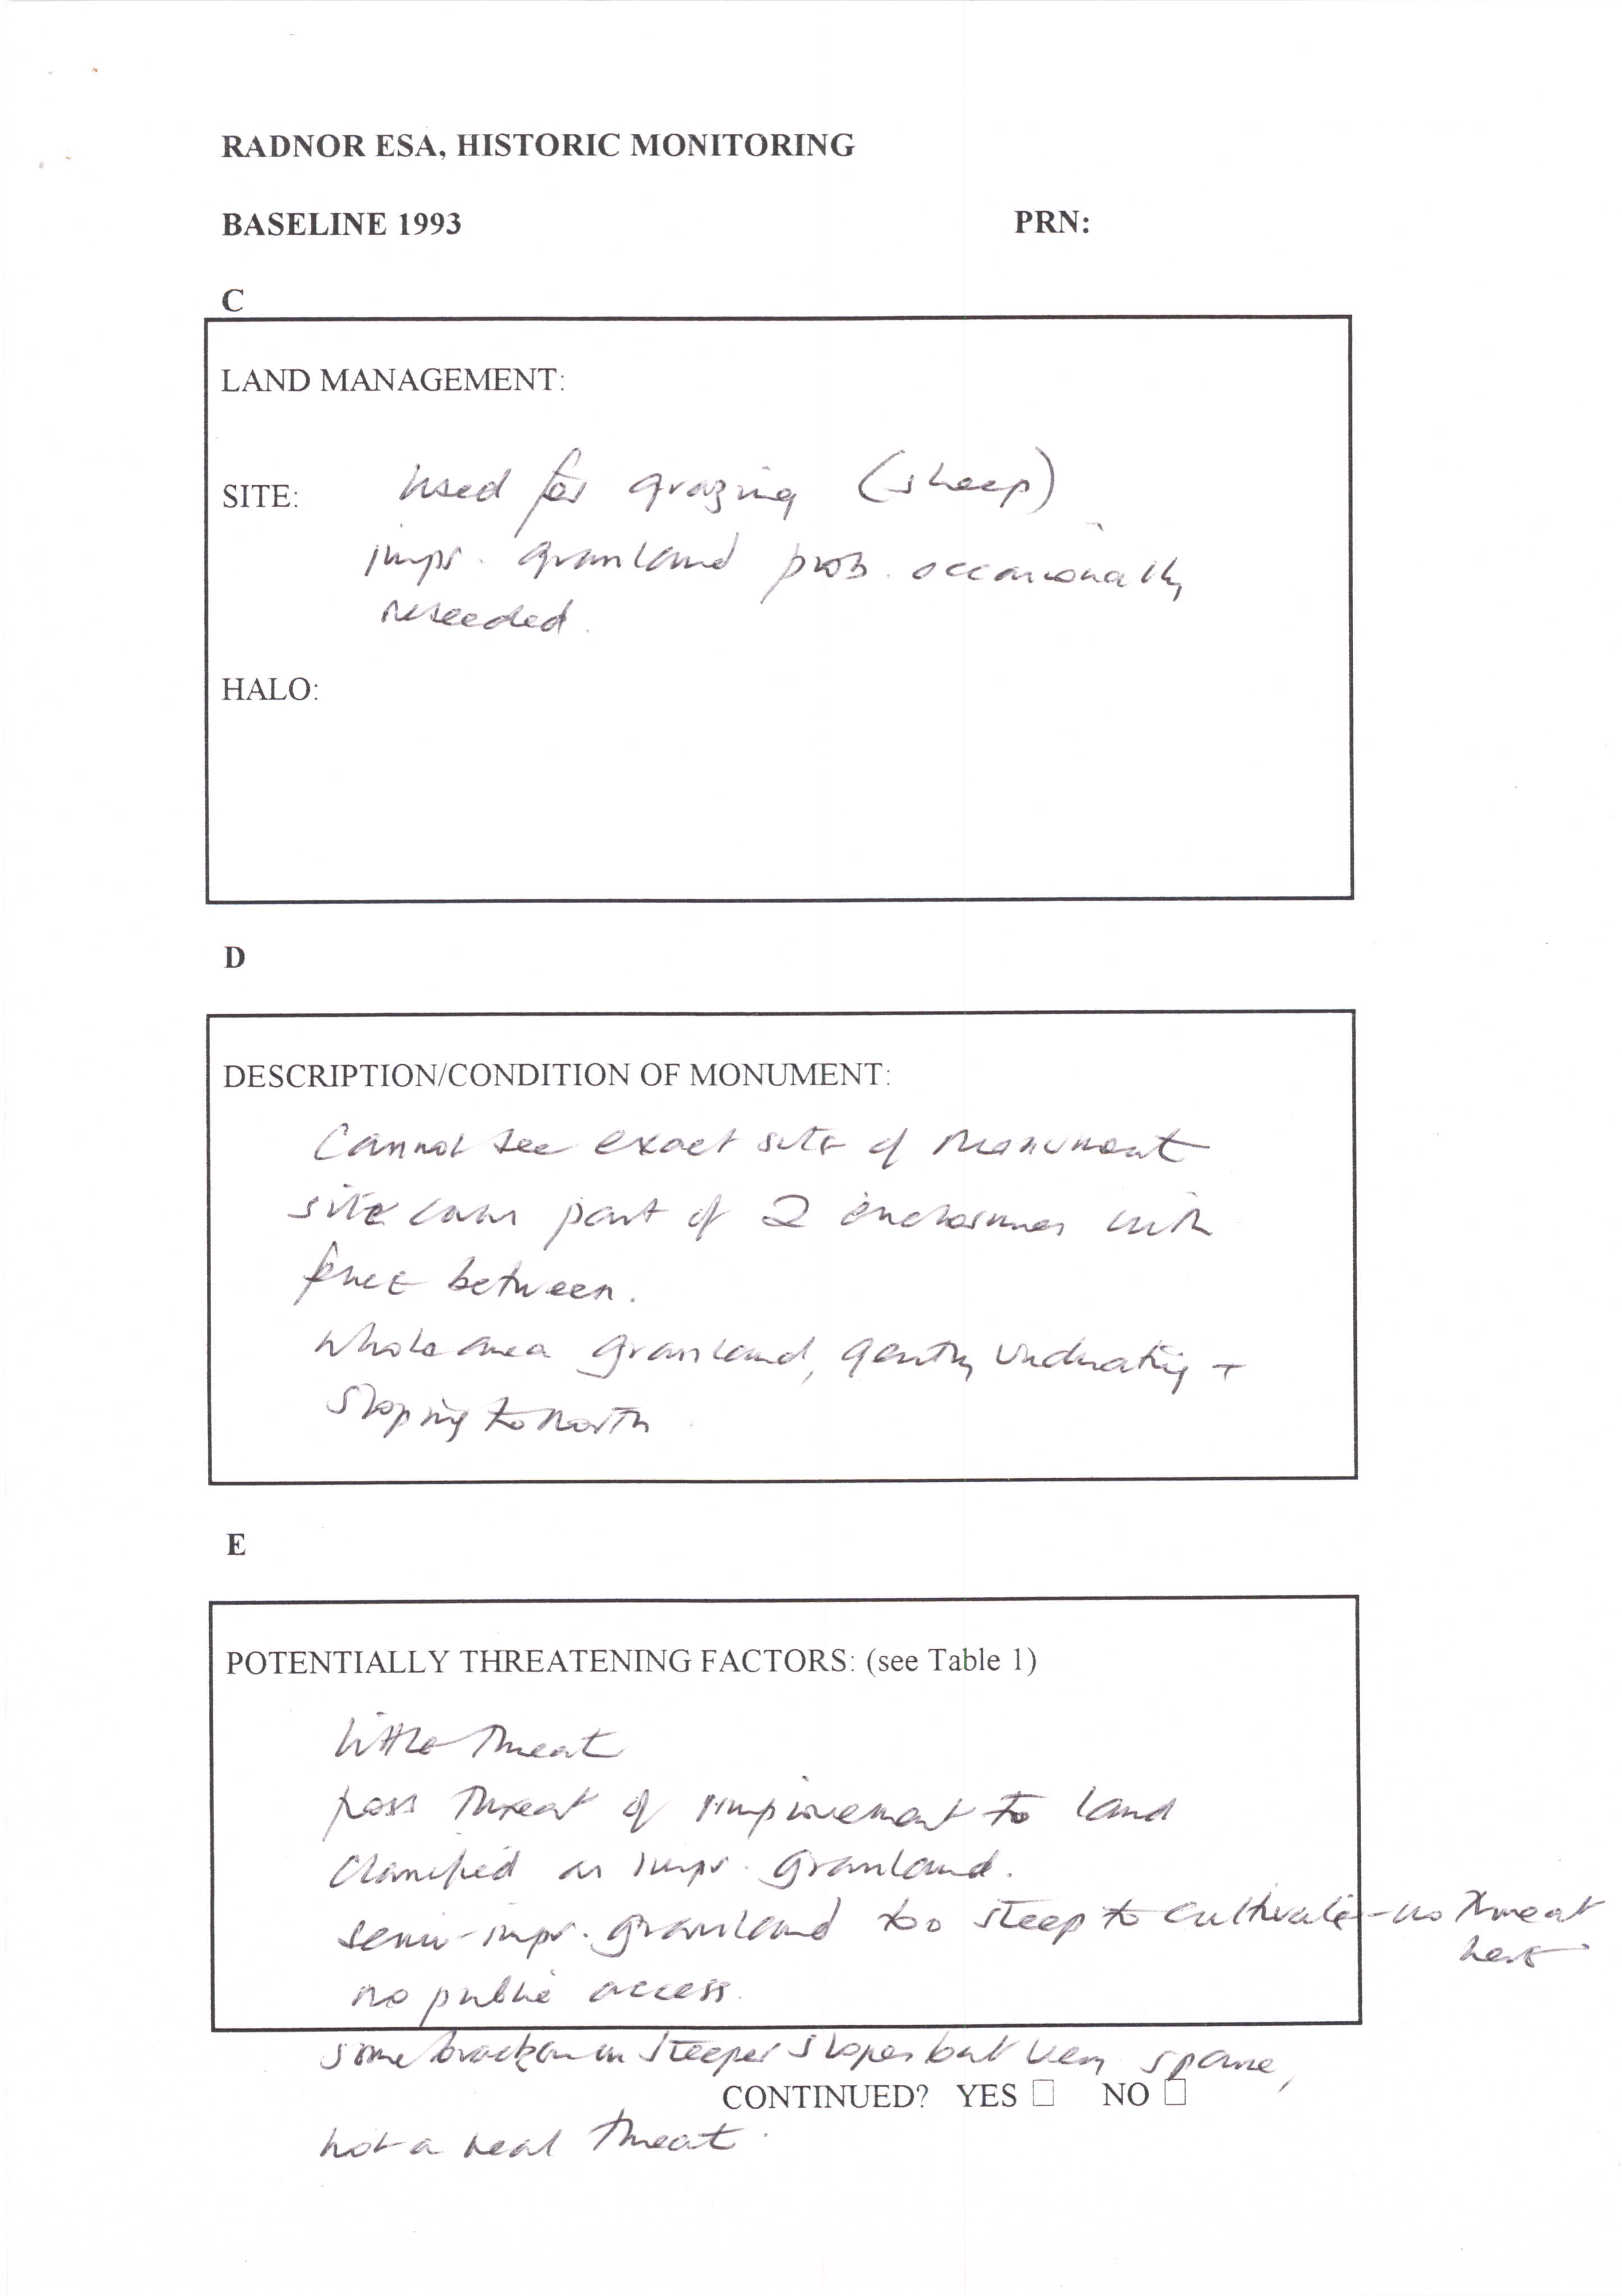 RADNOR ESA, HISTORIC MONITORING
BASELINE 1993 PRN:
C
LAND MANAGEMENT:
SITE: Used for grazing (sheep)
impr. grassland prob. occasionally
reseeded.
HALO:
D
DESCRIPTION/CONDITION OF MONUMENT:
Cannot see exact site of monument
site covers part of 2 enclosures with
fence between.
Whole area grassland, gently undulating +
sloping to north
E
POTENTIALLY THREATENING FACTORS: (see Table 1)
little threat
poss threat of improvement to land
classified as impr. grassland.
semi-impr. grassland too steep to cultivate - no threat
here
no public access.
some bracken on steeper slopes but very sparse,
CONTINUED? YES ☐ NO ☐
not a real threat.